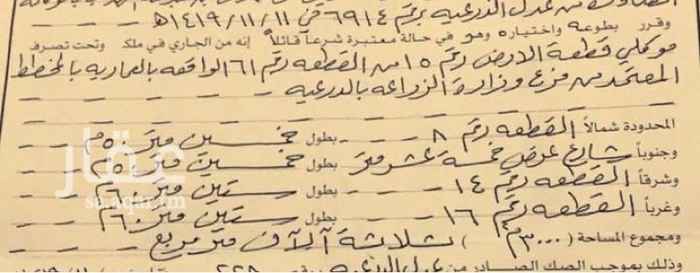 من عدل الدرعيه برقم ٦٩١٤ في ١٤١٩/١١/١١هـ
وقرر بطوعه واختياره وهو في حالة معتبرة شرعاً قائلاً إنه من الجاري في ملك وتحت تصرف
موكلي قطعة الارض رقم ١٥ من القطعه رقم ٦١ الواقعه بالعماريه بالمخطط
المعتمد من فرع وزارة الزراعه بالدرعيه
المحدودة شمالاً القطعه رقم ٨ بطول خمسين متر ٥٠م
وجنوباً شارع عرض خمسة عشر متر بطول خمسين متر ٥٠م
وشرقاً القطعه رقم ١٤ بطول ستين متر ٦٠م
وغرباً القطعه رقم ١٦ بطول ستين متر ٦٠م
ومجموع المساحة (٣٠٠٠م٢) ثلاثة آلاف متر مربع
وذلك بموجب الصك الصادر من عدل الدرعيه برقم ٢٢٨
عقار
sa.aqar.fm